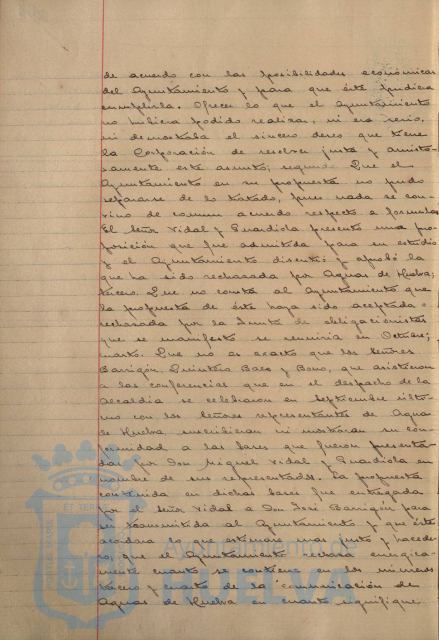 de acuerdo con las posibilidades económicas
del Ayuntamiento y para que éste pudiera
cumplirla. Ofrecer lo que el Ayuntamiento
no hubiera podido realizar, ni era serio,
ni demostraba el sincero deseo que tiene
la Corporación de resolver justa y amisto-
samente este asunto; segundo. Que el
Ayuntamiento en su propuesta no pudo
separarse de lo tratado, pues nada se con-
vino de comun acuerdo respecto a formula
El Señor Vidal y Guardiola presentó una pro-
posición que fue admitida para su estudio
y el Ayuntamiento discutió y aprobó la
que ha sido rechazada por Aguas de Huelva;
tercero. Que no consta al Ayuntamiento que
la propuesta de éste haya sido aceptada o
rechazada por la Junta de obligacionistas
que se manifestó se reuniria en Octubre;
cuarto. Que no es exacto que los Señores
Barrigón, Quintero Baez y Bono, que asistieron
a las conferencias que en el despacho de la
Alcaldia se celebraron en Septiembre últi-
mo con los Señores representantes de Aguas
de Huelva, suscribieran ni mostraran su con-
formidad a las bases que fueron presenta-
das por Don Miguel Vidal y Guardiola en
nombre de sus representados. La propuesta
contenida en dichas bases fue entregada
por el Señor Vidal a Don José Barrigón para
ser transmitida al Ayuntamiento y que éste
acordara lo que estimara mas justo y hacede-
ro, que el Ayuntamiento rechaza energica-
mente cuanto se contiene en los numeros
tercero y cuarto de la comunicación de
Aguas de Huelva en cuanto signifique
Ayuntamiento de
HUELVA